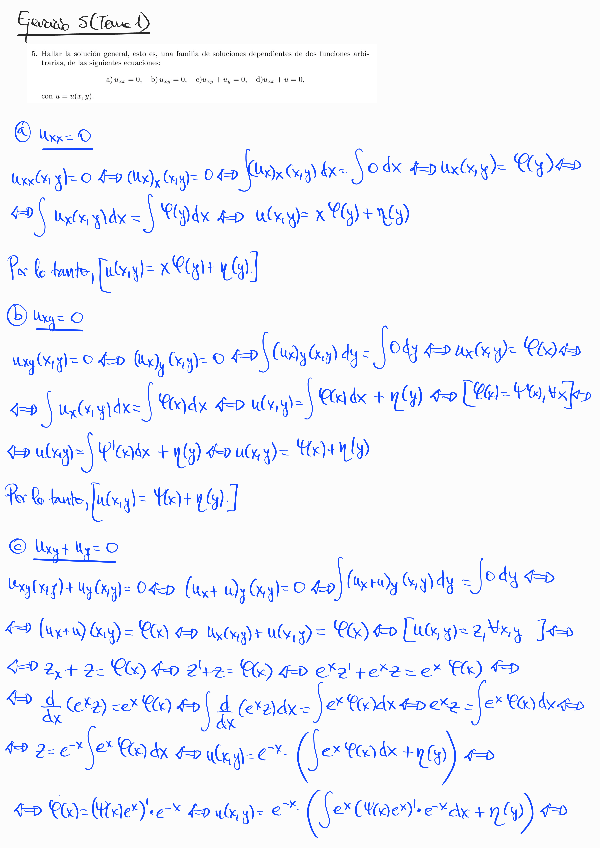 Ejercicio 5 (Tema 1)
5. Hallar la solución general, esto es, una familia de soluciones dependientes de dos funciones arbi-
trarias, de las siguientes ecuaciones:
a) u_xx = 0, b) u_xy = 0, c) u_xy + u_y = 0, d) u_xx + u = 0,
con u = u(x, y)
ⓐ u_xx = 0
u_xx(x,y) = 0 ⟺ (u_x)_x(x,y) = 0 ⟺ ∫(u_x)_x(x,y) dx = ∫0 dx ⟺ u_x(x,y) = φ(y) ⟺
⟺ ∫u_x(x,y) dx = ∫φ(y) dx ⟺ u(x,y) = xφ(y) + η(y)
Por lo tanto, [u(x,y) = xφ(y) + η(y).]
ⓑ u_xy = 0
u_xy(x,y) = 0 ⟺ (u_x)_y(x,y) = 0 ⟺ ∫(u_x)_y(x,y) dy = ∫0 dy ⟺ u_x(x,y) = φ(x) ⟺
⟺ ∫u_x(x,y) dx = ∫φ(x) dx ⟺ u(x,y) = ∫φ(x) dx + η(y) ⟺ [φ(x) = ψ'(x), ∀x] ⟺
⟺ u(x,y) = ∫ψ'(x) dx + η(y) ⟺ u(x,y) = ψ(x) + η(y)
Por lo tanto, [u(x,y) = ψ(x) + η(y).]
ⓒ u_xy + u_y = 0
u_xy(x,y) + u_y(x,y) = 0 ⟺ (u_x + u)_y(x,y) = 0 ⟺ ∫(u_x+u)_y(x,y) dy = ∫0 dy ⟺
⟺ (u_x+u)(x,y) = φ(x) ⟺ u_x(x,y) + u(x,y) = φ(x) ⟺ [u(x,y) = z, ∀x,y ] ⟺
⟺ z_x + z = φ(x) ⟺ z' + z = φ(x) ⟺ e^x z' + e^x z = e^x φ(x) ⟺
⟺ d/dx (e^x z) = e^x φ(x) ⟺ ∫ d/dx (e^x z) dx = ∫e^x φ(x) dx ⟺ e^x z = ∫e^x φ(x) dx ⟺
⟺ z = e^-x ∫e^x φ(x) dx ⟺ u(x,y) = e^-x · (∫e^x φ(x) dx + η(y)) ⟺
⟺ φ(x) = (ψ(x)e^x)' · e^-x ⟺ u(x,y) = e^-x · (∫e^x (ψ(x)e^x)' · e^-x dx + η(y)) ⟺